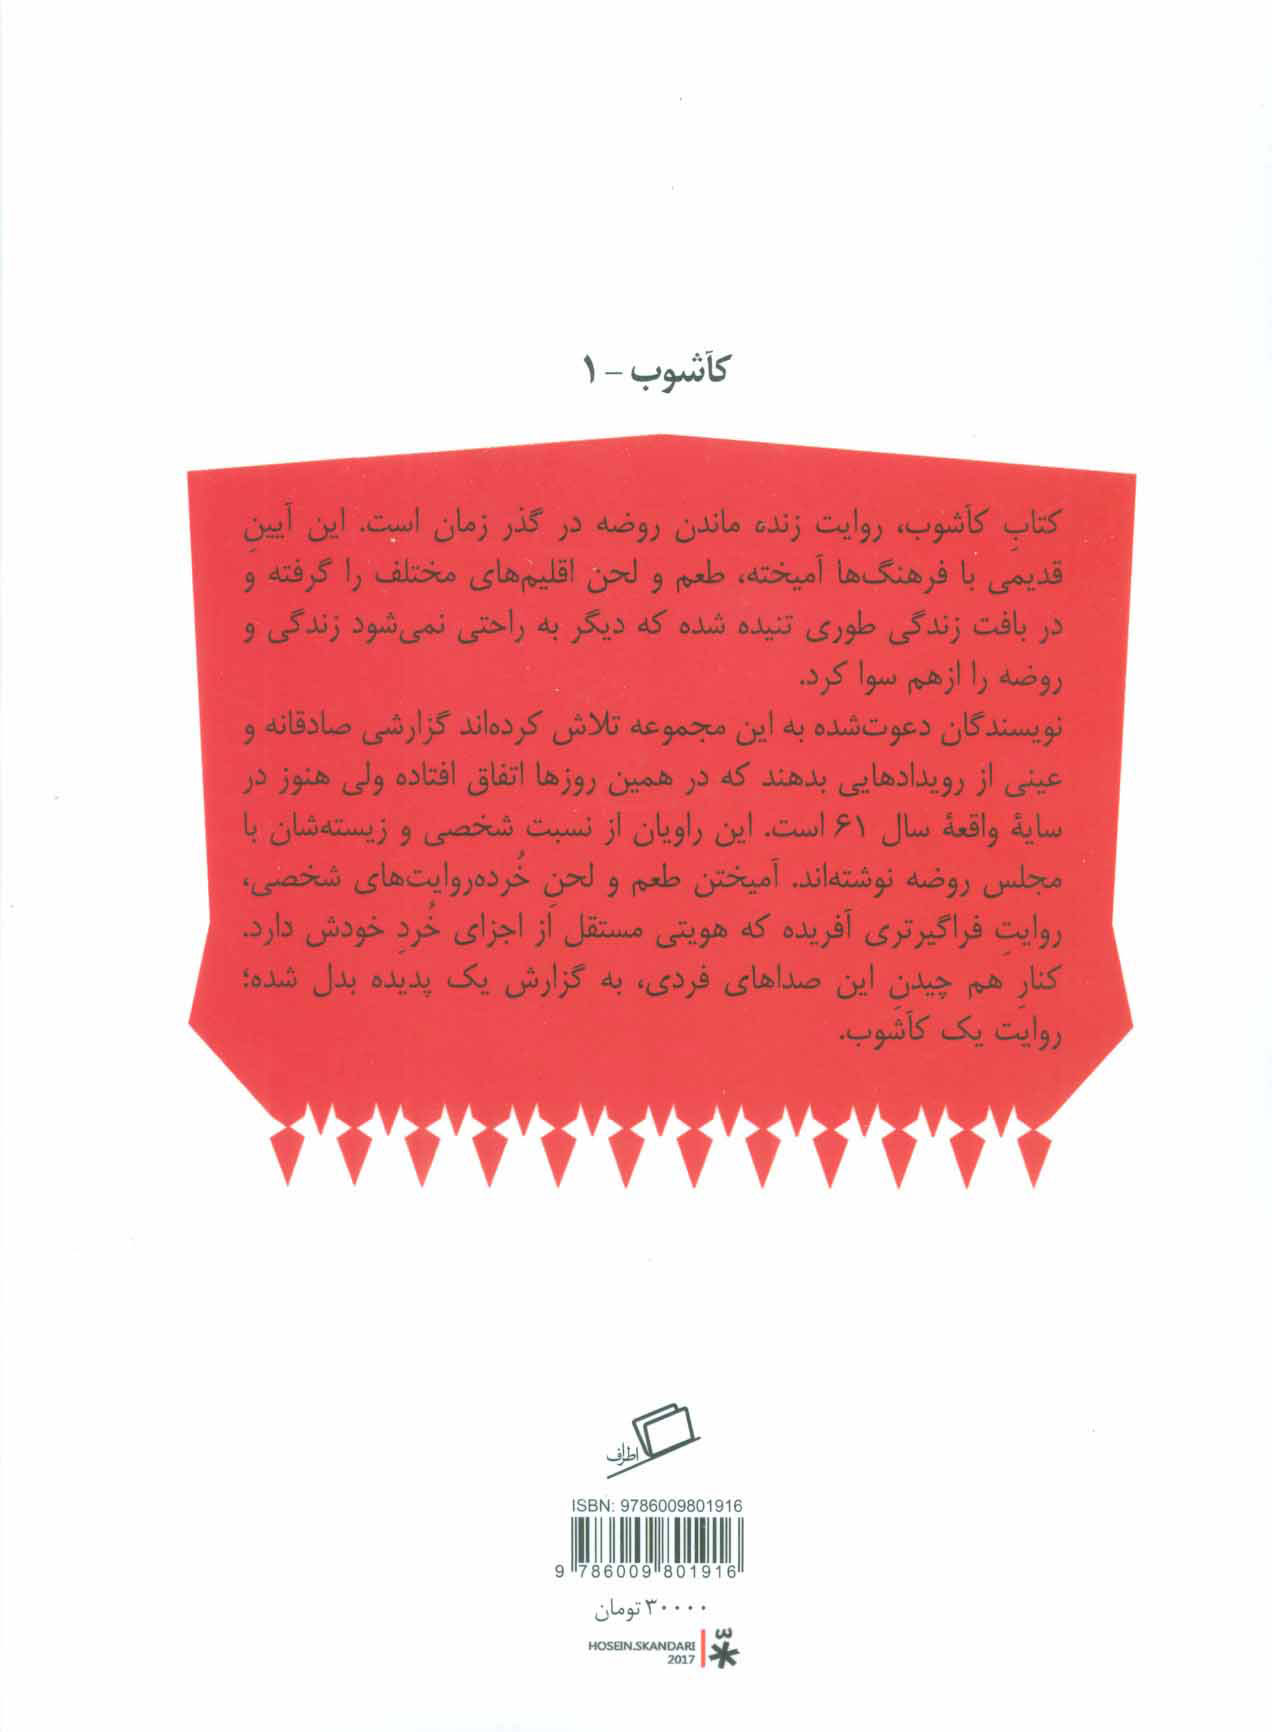 کآشوب – ۱
کتابِ کآشوب، روایت زنده ماندن روضه در گذر زمان است. این آیینِ
قدیمی با فرهنگ‌ها آمیخته، طعم و لحن اقلیم‌های مختلف را گرفته و
در بافت زندگی طوری تنیده شده که دیگر به راحتی نمی‌شود زندگی و
روضه را ازهم سوا کرد.
نویسندگان دعوت‌شده به این مجموعه تلاش کرده‌اند گزارشی صادقانه و
عینی از رویدادهایی بدهند که در همین روزها اتفاق افتاده ولی هنوز در
سایهٔ واقعهٔ سال ۶۱ است. این راویان از نسبت شخصی و زیسته‌شان با
مجلس روضه نوشته‌اند. آمیختن طعم و لحنِ خُرده‌روایت‌های شخصی،
روایتِ فراگیرتری آفریده که هویتی مستقل از اجزای خُردِ خودش دارد.
کنارِ هم چیدنِ این صداهای فردی، به گزارش یک پدیده بدل شده؛
روایت یک کآشوب.
اطراف
ISBN: 9786009801916
9 786009 801916
۳۰۰۰۰ تومان
HOSEIN.SKANDARI
2017